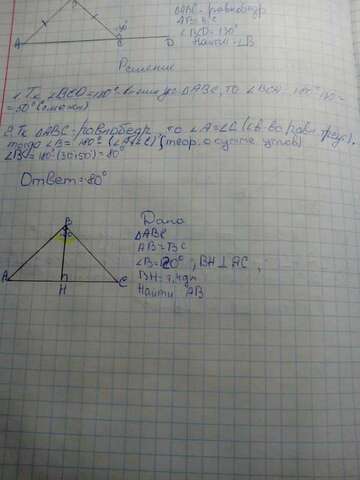 ΔABC - равнобедр
AB=BC
∠BCD=130°
Найти ∠B
B
130°
A
C
D
Решение
1. Тк ∠BCD=130° ΔABC, то ∠BCA
=50° (смежн)
2. Тк ΔABC - равнобедр, то ∠A=∠C (св. во равн. треуг),
тогда ∠B= 180°-(∠A+∠C) (теор. о сумме углов)
∠B=180°-(50+50)=80°
Ответ = 80°
Дано
ΔABC
AB=BC
∠B=120°, BH⊥AC,
BH=7,4дм
Найти AB
B
A
H
C